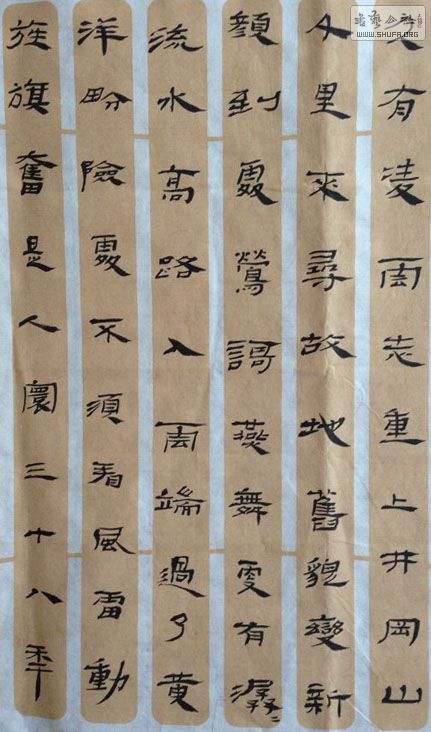 久有凌雲志重上井岡山
千里來尋故地舊貌變新
顏到處鶯謌燕舞更有潺〻
流水高路入雲端過了黄
洋畍險處不須看風雷動
旌旗奮是人寰三十八年
WWW.SHUFA.ORG